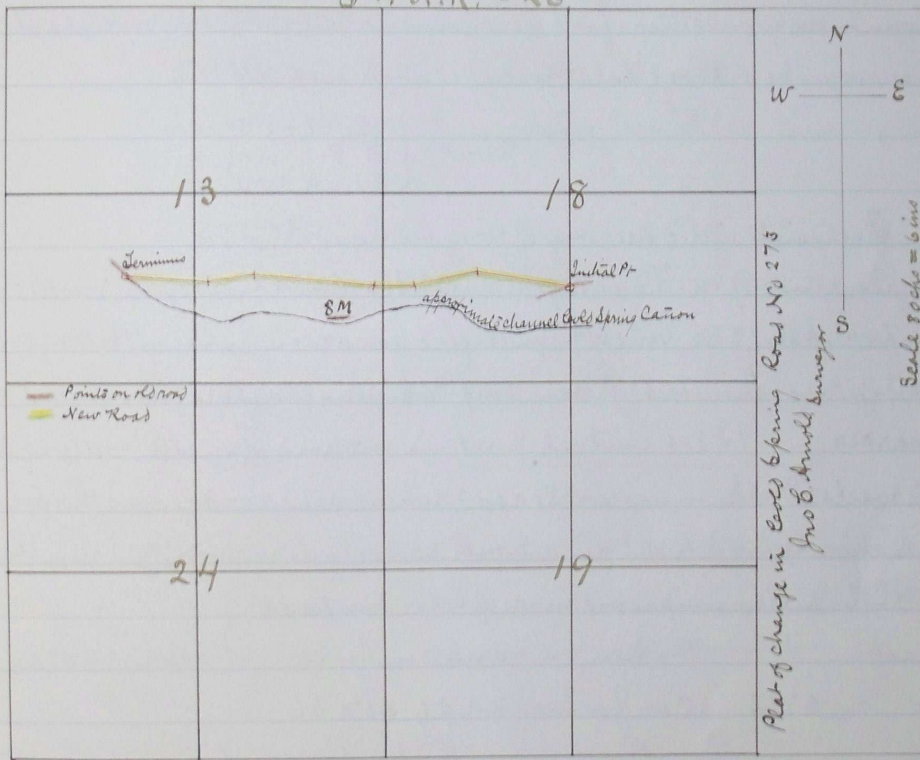 N
W E
S
13 18
Terminus
Initial Pt
8M
approximate channel Eeels Spring Cañon
Points on old road
New Road
24 19
Plat of change in Spring Road No 273
Jno E. Arnold surveyor
Scale 80 chs = 6 ins